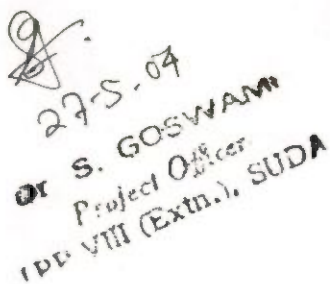 27-5-04
Dr S. GOSWAMI
Project Officer
IPP VIII (Extn.), SUDA